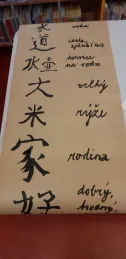 voda
道 cesta, způsob (bytí)
水壶 konvice na vodu
大 velký
米 rýži
家 rodina
好 dobrý, hodný,